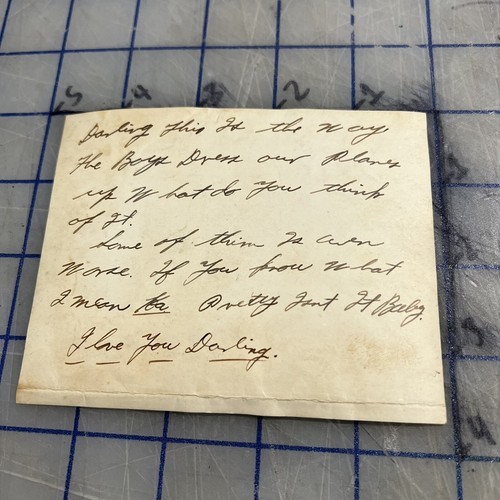 Darling this Is the way
the Boys Dress our Planes
up What do You think
of It.
Some of thim Is even
Worse. If You know What
I mean Ha Pretty Isnt It Baby.
I love You Darling.